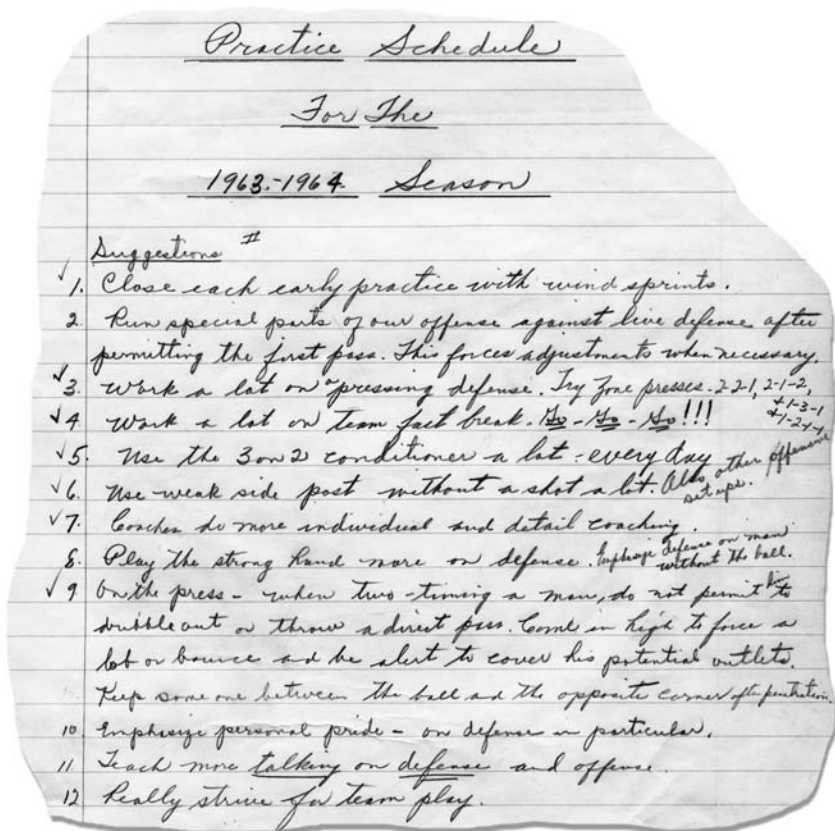 Practice Schedule
For The
1963-1964 Season
Suggestions II
✓ 1. Close each early practice with wind sprints.
2. Run special parts of our offense against live defense after
permitting the first pass. This forces adjustments when necessary.
✓ 3. Work a lot on pressing defense. Try zone presses. 2-2-1, 2-1-2,
+1-3-1
+1-2-1-1
✓ 4. Work a lot on team fast break. Go - Go - Go!!!
✓ 5. Use the 3 on 2 conditioner a lot - every day
✓ 6. Use weak side post without a shot a lot. Also other offensive
set ups.
✓ 7. Coaches do more individual and detail coaching.
8. Play the strong hand more on defense. Emphasize defense on man
without the ball.
✓ 9. On the press - when two-timing a man, do not permit him to
dribble out or throw a direct pass. Come in high to force a
lob or bounce and be alert to cover his potential outlets.
Keep some one between the ball and the opposite corner after penetration.
10. Emphasize personal pride - on defense in particular.
11. Teach more talking on defense and offense.
12. Really strive for team play.